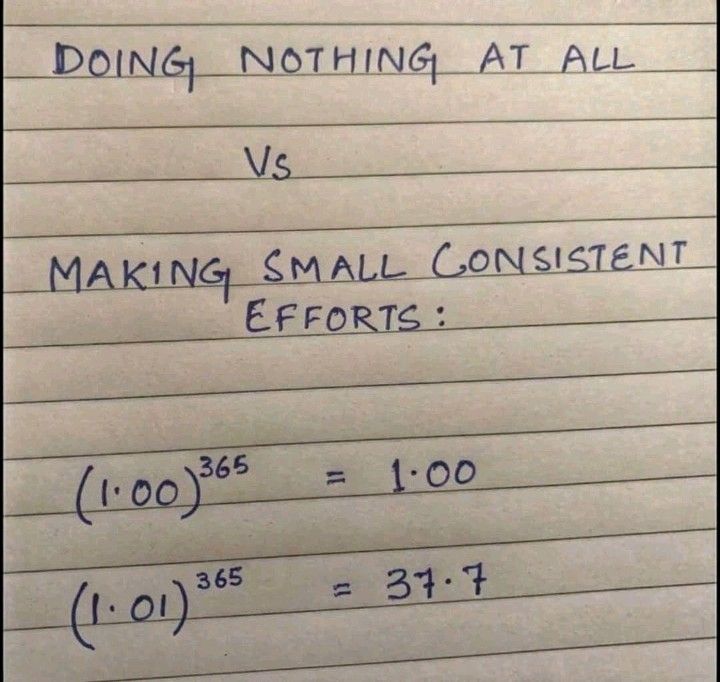 DOING NOTHING AT ALL
Vs
MAKING SMALL CONSISTENT
EFFORTS:
(1.00)³⁶⁵ = 1.00
(1.01)³⁶⁵ = 37.7